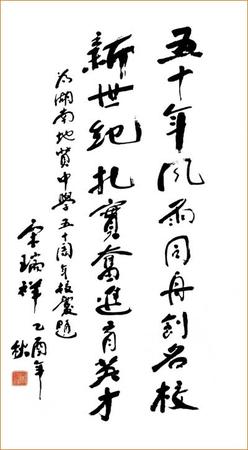 五十年风雨同舟創名校
新世纪扎實奮進育英才
为湖南地質中學五十周年校慶題
宋瑞祥
乙酉年
秋